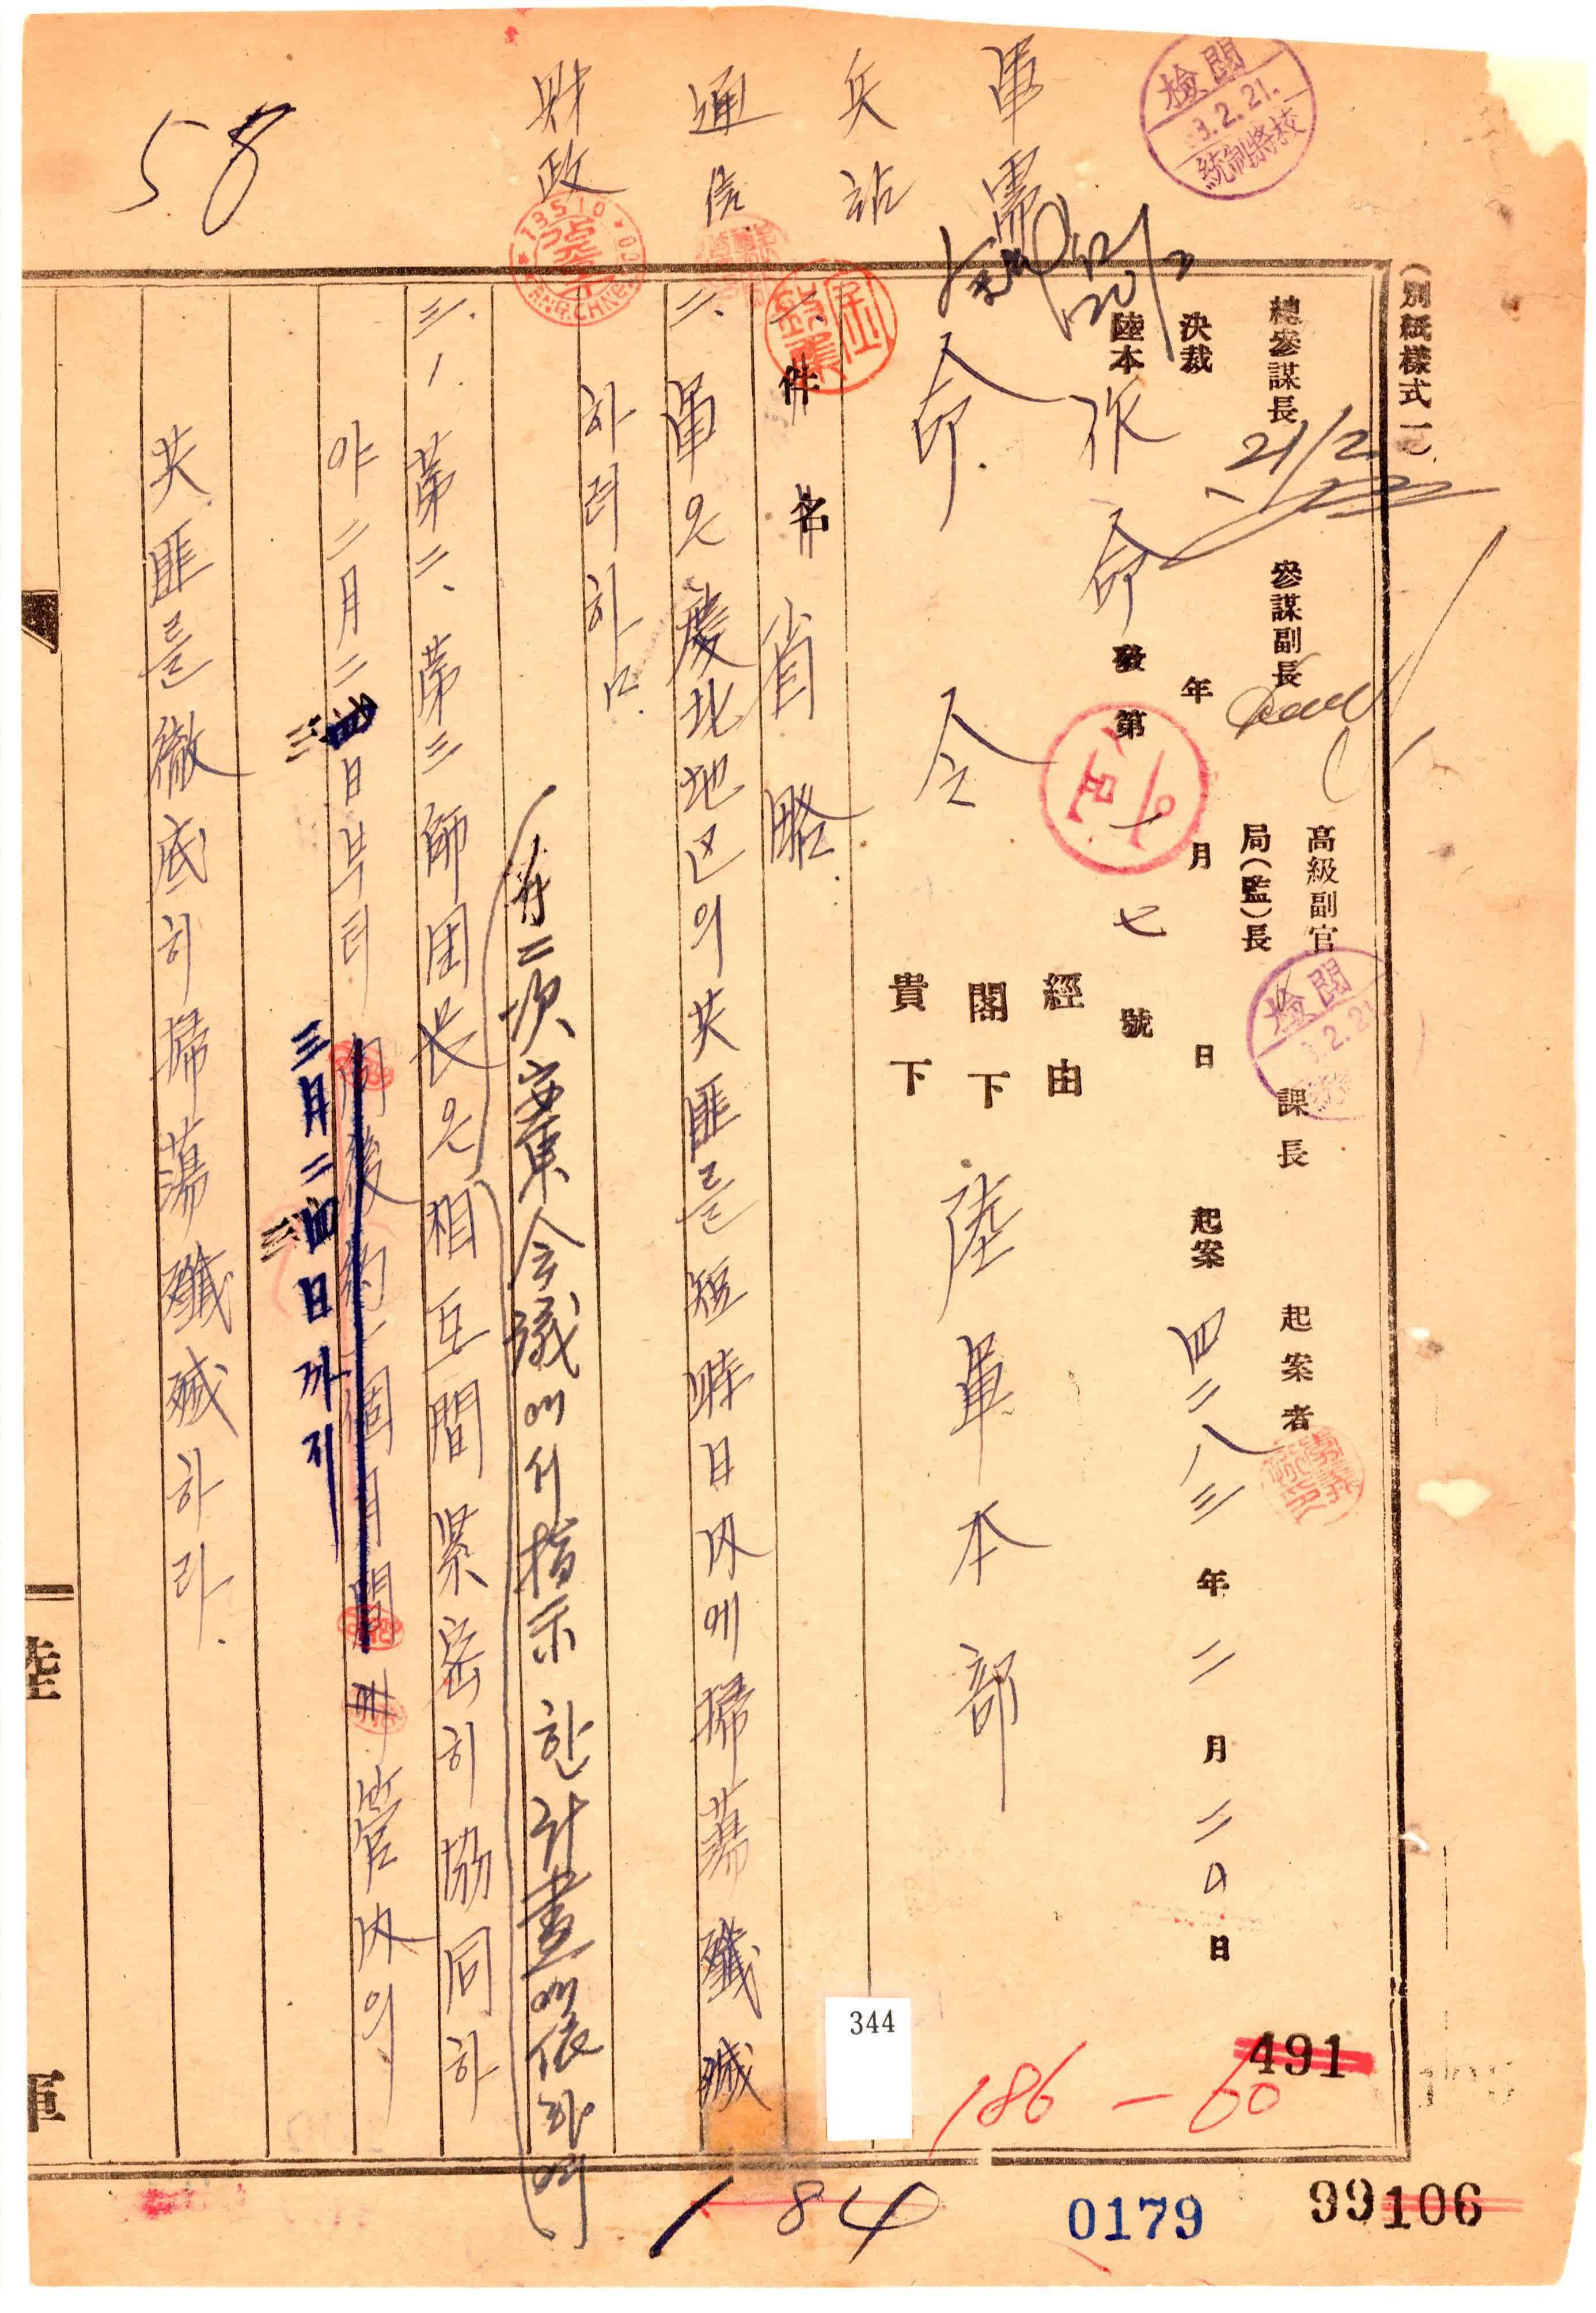 (別紙樣式一)
檢閱
3.2.21.
軍需
兵站
通信
財政
58
總參謀長
21/2
參謀副長
高級副官
局(監)長
課長
起案者
檢閱
決裁
年 月 日
起案 四二八三年 二月 二〇日
陸本 作命 發第 一七號
經由
閣下
貴下
命令 陸軍本部
一、件名 省略
二、軍은 慶北地区의 共匪를 短時日内에 掃蕩殲滅
하려 함.
第二次 安東会議에서 指示한 計畫에 依하여
三、1. 第二、第三師団長은 相互間 緊密히 協同하
야 二月二四日부터 向後 約一個月間 管内의
三
三月二四日까지
三
共匪를 徹底히 掃蕩殲滅하라.
陸
軍
344
491
186-60
184
0179
99106